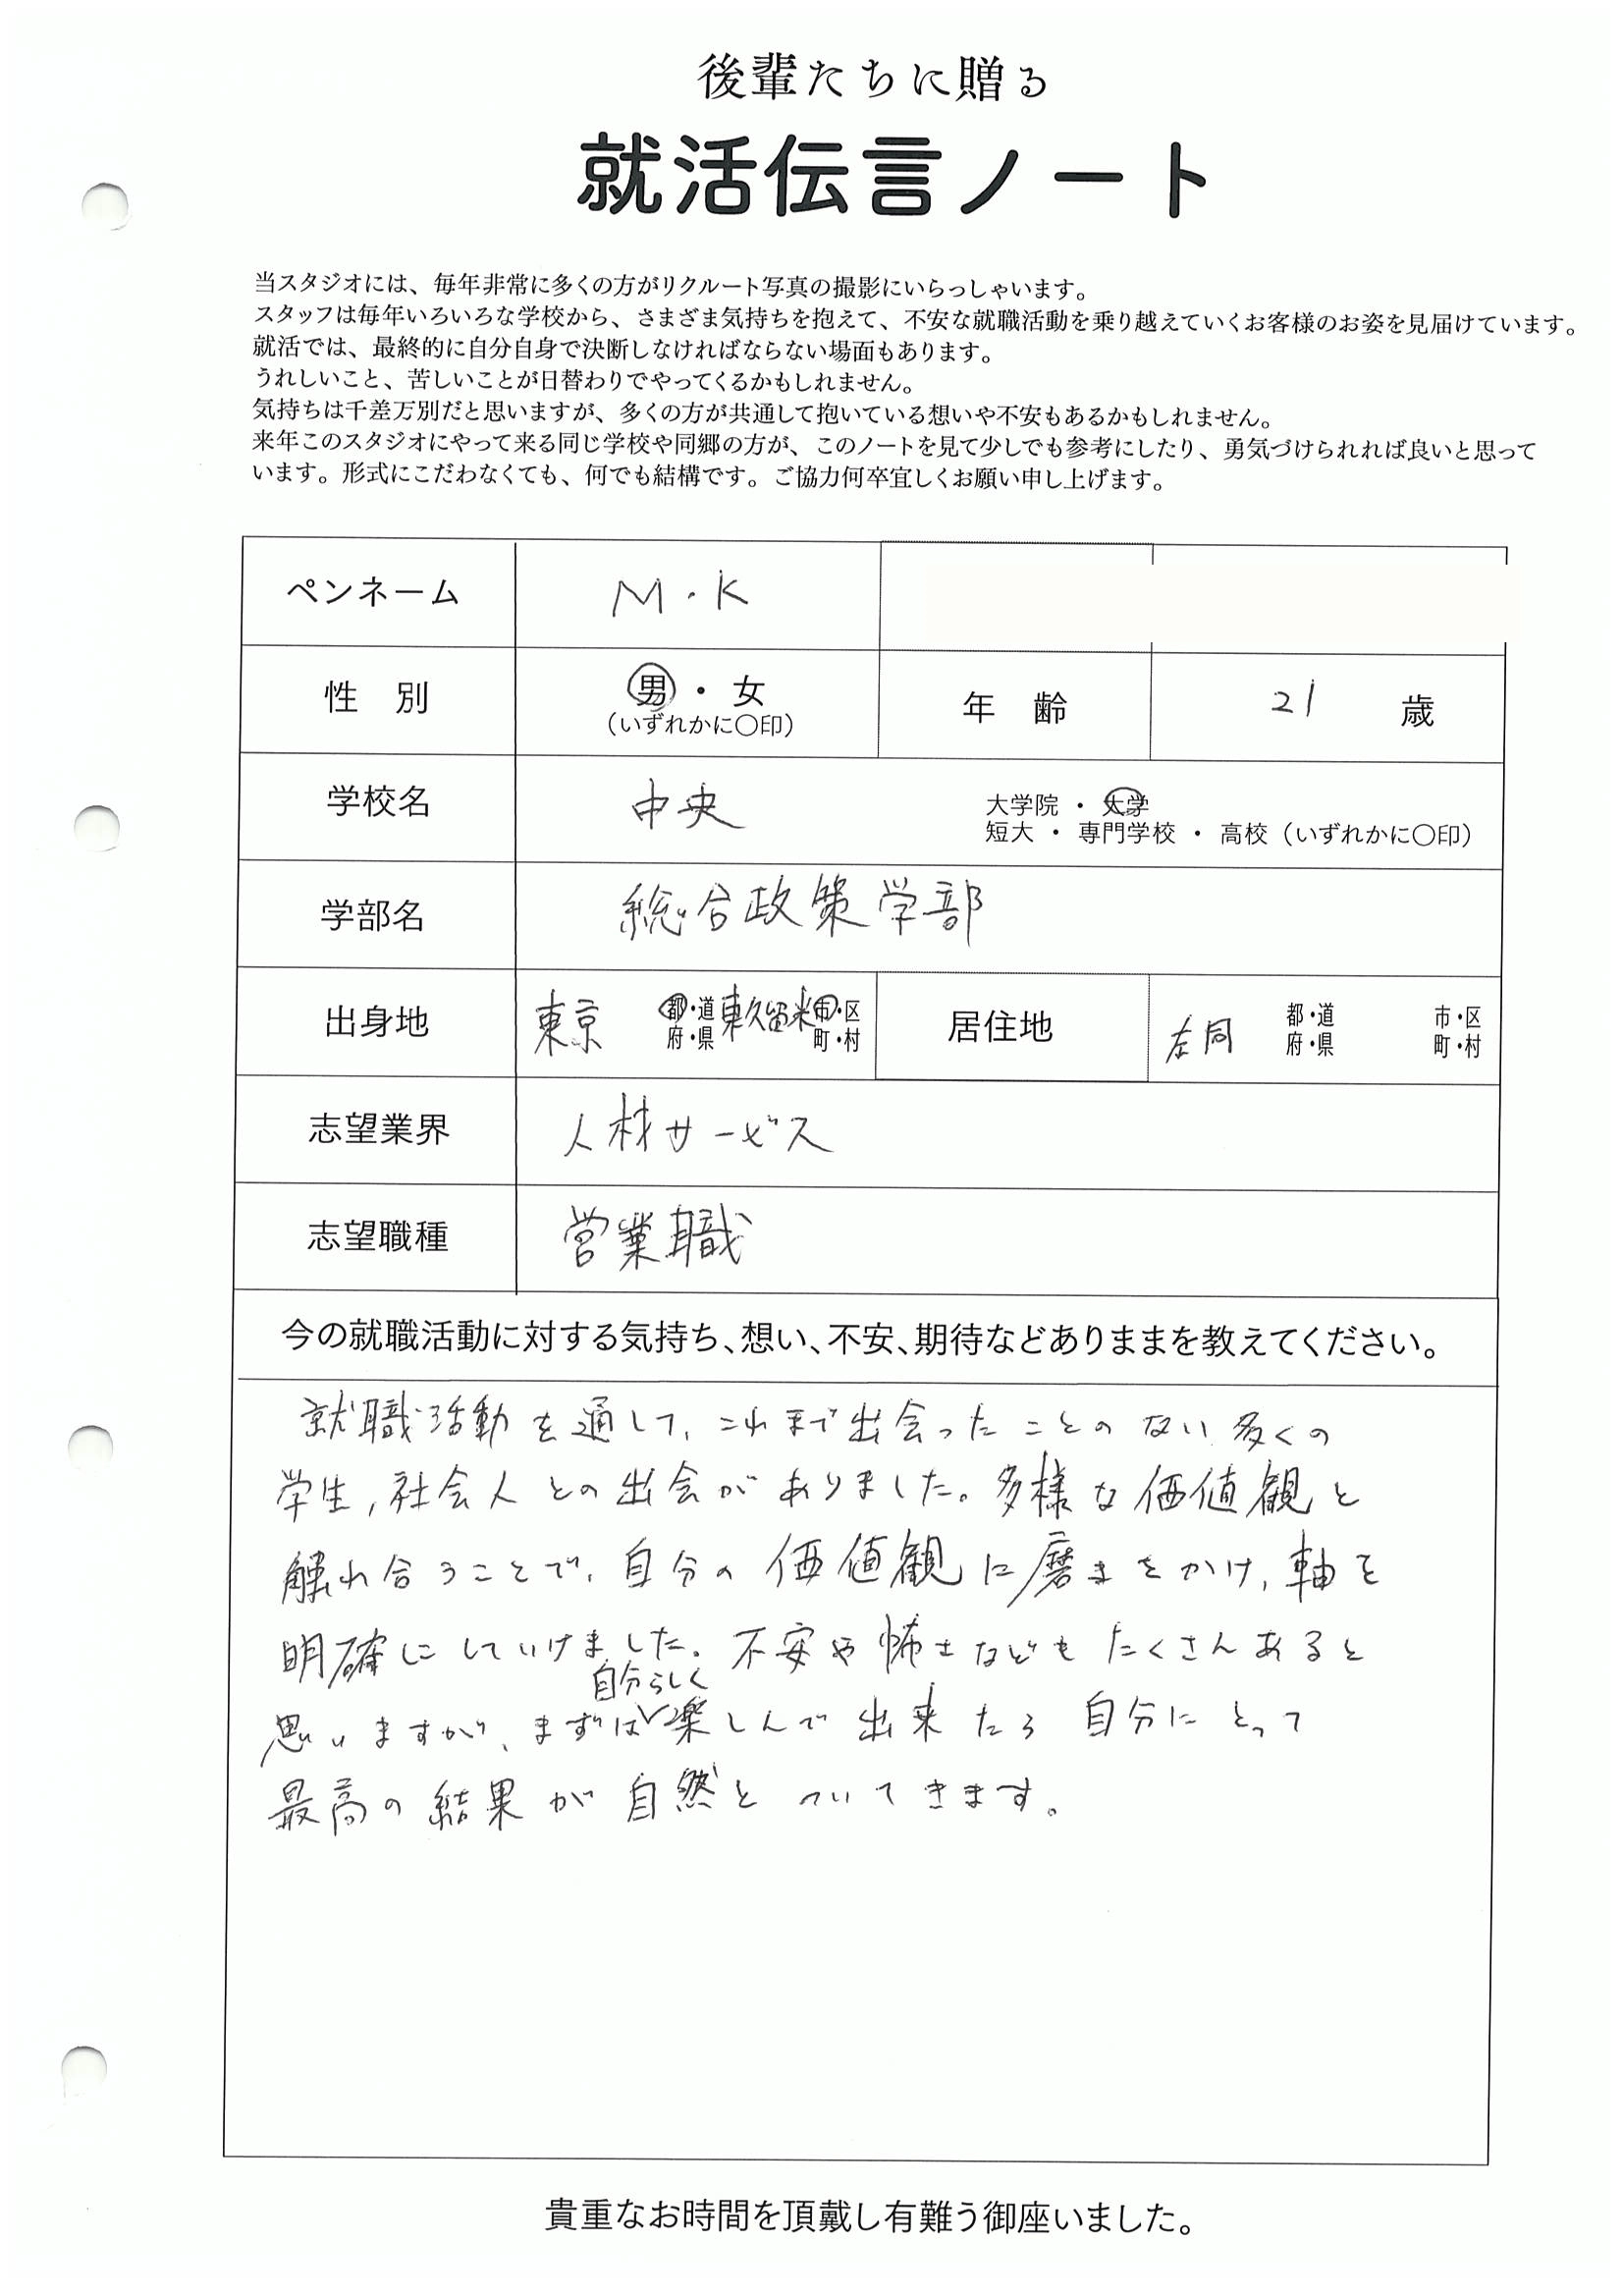 後輩たちに贈る
就活伝言ノート
当スタジオには、毎年非常に多くの方がリクルート写真の撮影にいらっしゃいます。
スタッフは毎年いろいろな学校から、さまざま気持ちを抱えて、不安な就職活動を乗り越えていくお客様のお姿を見届けています。
就活では、最終的に自分自身で決断しなければならない場面もあります。
うれしいこと、苦しいことが日替わりでやってくるかもしれません。
気持ちは千差万別だと思いますが、多くの方が共通して抱いている想いや不安もあるかもしれません。
来年このスタジオにやって来る同じ学校や同郷の方が、このノートを見て少しでも参考にしたり、勇気づけられれば良いと思って
います。形式にこだわなくても、何でも結構です。ご協力何卒宜しくお願い申し上げます。
ペンネーム M・K
性別 男・女 年齢 21 歳
(いずれかに〇印)
学校名 中央 大学院・大学
短大・専門学校・高校(いずれかに〇印)
学部名 総合政策学部
出身地 東京 都・道 東久留米 市・区 居住地 左同 都・道 市・区
府・県 町・村 府・県 町・村
志望業界 人材サービス
志望職種 営業職
今の就職活動に対する気持ち、想い、不安、期待などありままを教えてください。
就職活動を通して、これまで出会ったことのない多くの
学生,社会人との出会がありました。多様な価値観と
触れ合うことで、自分の価値観に磨きをかけ,軸を
明確にしていけました。不安や怖さなどもたくさんあると
自分らしく
思いますが、まずは楽しんで出来たら自分にとって
最高の結果が自然とついてきます。
貴重なお時間を頂戴し有難う御座いました。